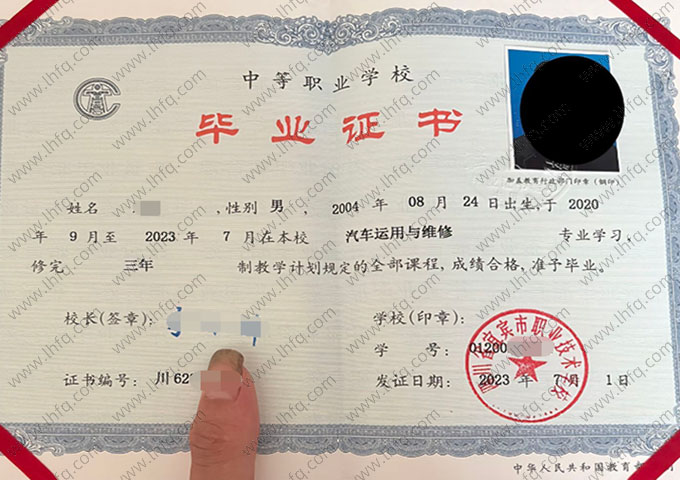 中等职业学校
毕业证书
加盖教育行政部门印章（钢印）
姓名 ,性别 男 , 2004 年 08 月 24 日出生,于 2020
年 9 月至 2023 年 7 月在本校 汽车运用与维修 专业学习,
修完 三年 制教学计划规定的全部课程,成绩合格,准予毕业。
校长(签章): 学校(印章):
四川省宜宾市职业技术学校
学 号: Q1200
证书编号: 川 62 发证日期: 2023 年 7 月 1 日
中华人民共和国教育部
www.lhfq.com